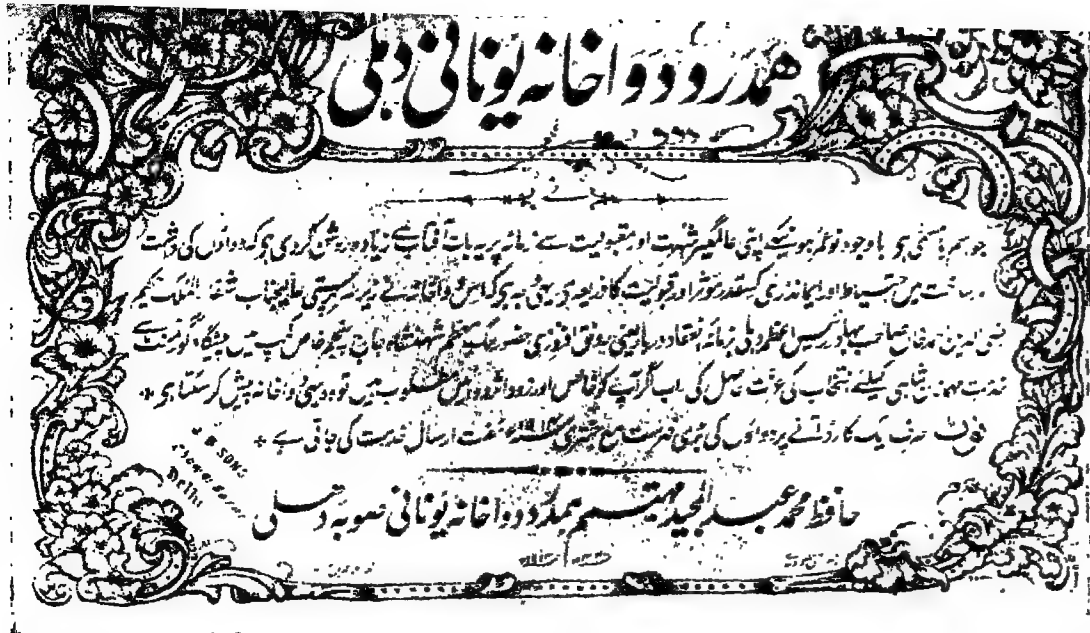 ہمدرد دواخانہ یونانی دہلی
جو اسم بامسمی ہو باوجود نوعمر ہونیکے اپنی عالمگیر شہرت اور مقبولیت سے زمانہ پر یہ بات آفتاب سے زیادہ روشن کر دی ہو کہ دواؤں کی
ساخت میں احتیاط اور ایمانداری کسقدر مؤثر اور قبولیت کا ذریعہ ہو یہی وجہ ہو کہ اس دواخانہ نے زیر سرپرستی عالیجناب شفاء الملک حکیم
رضی الدین احمد خاں صاحب بہادر رئیس اعظم دہلی بزمانہ انعقاد دربار یعنی رونق افروزی حضور ملک معظم شہنشاہ جارج پنجم خاص کیمپ میں گورنمنٹ سے
خدمت شاہی کیلئے انتخاب کی عزت حاصل کی اب اگر آپ کو خالص اور زود اثر دوائیں مطلوب ہیں تو وہ یہی دواخانہ پیش کر سکتا ہو
نوٹ صرف ایک کارڈ آنے پر دواؤں کی بڑی فہرست مع جنتری مفت ارسال خدمت کی جاتی ہے
J. B. SONS
Delhi
حافظ محمد عبد المجید مہتمم ہمدرد دواخانہ یونانی صوبہ دہلی